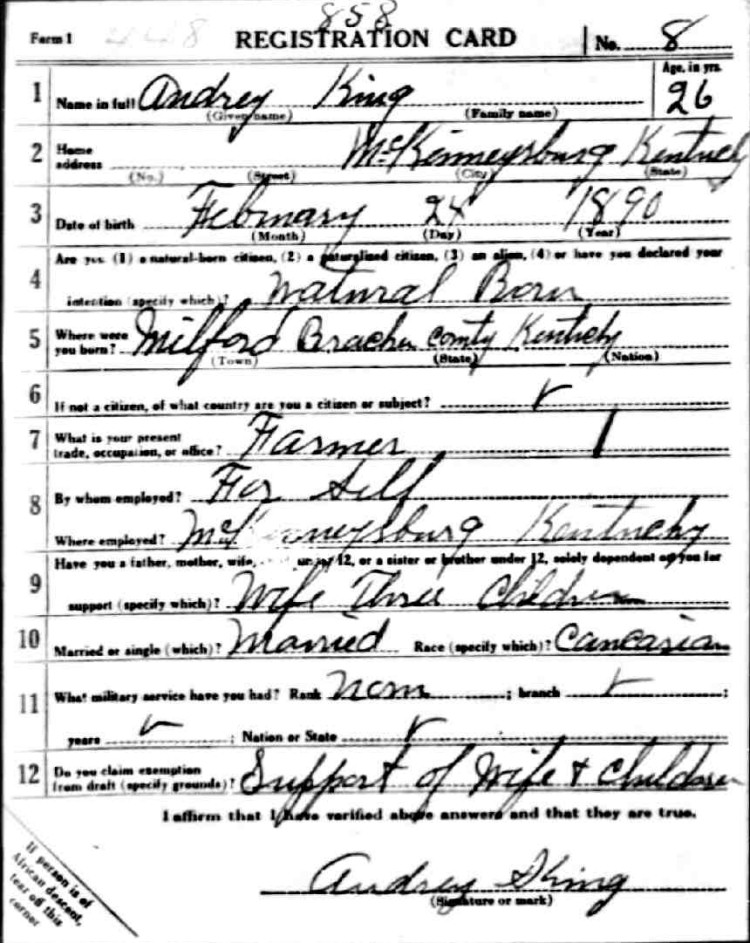 858
Form 1 REGISTRATION CARD No. 8
1 Name in full Audrey King Age, in yrs. 26
(Given name) (Family name)
2 Home address McKinneysburg Kentucky
(No.) (Street) (City) (State)
3 Date of birth February 24 1890
(Month) (Day) (Year)
Are you (1) a natural-born citizen, (2) a naturalized citizen, (3) an alien, (4) or have you declared your
4 intention (specify which)? Natural Born
5 Where were you born? Milford Bracken County Kentucky
(Town) (State) (Nation)
6 If not a citizen, of what country are you a citizen or subject?
7 What is your present trade, occupation, or office? Farmer
8 By whom employed? For Self
Where employed? McKinneysburg Kentucky
Have you a father, mother, wife, under 12, or a sister or brother under 12, solely dependent on you for
9 support (specify which)? Wife Three Children
10 Married or single (which)? Married Race (specify which)? Caucasian
11 What military service have you had? Rank None ; branch ;
years ; Nation or State
12 Do you claim exemption from draft (specify grounds)? Support of Wife + Children
I affirm that I have verified above answers and that they are true.
Audrey King
(Signature or mark)
If person is of
African descent,
tear off this
corner